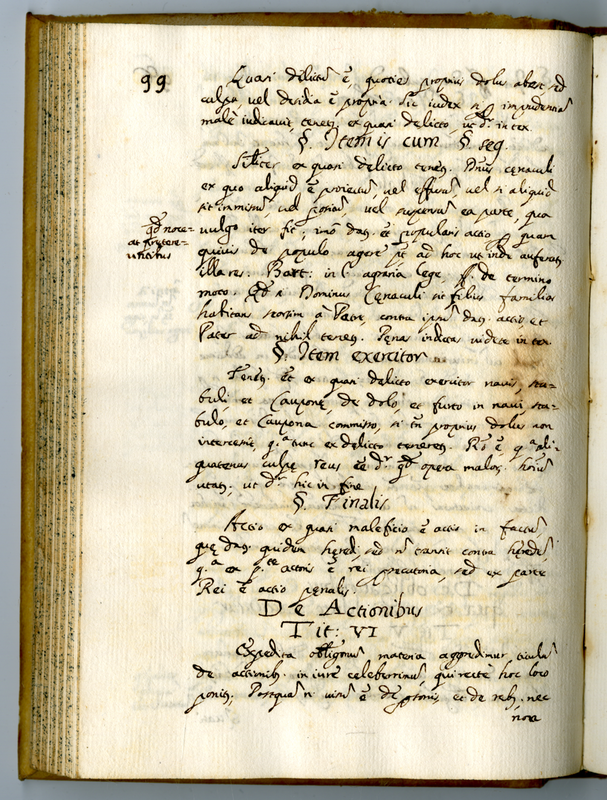 99
Quasi delictũ ẽ, quoties proprius dolus abest, sed
culpa vel desidia ẽ propria. Sic iudex si p imprudentiã
malè iudicavit, tenet, ex quasi delicto, ut dr in tex.
§. Item is cum § seq.
Siliter ex quasi delicto tenet Dnus cenaculi
ex quo aliquid ẽ proiectũ, vel effusũ vel si aliquid
sit immissũ, vel positũ, vel suspensũ ea parte, qua
vulgo iter fit; imò dat et popularis actio p quam
qd noce-
at pretere-
untibus
quivis de populo agere pt ad hoc ut inde auferat
illa res. Bart: in l. agraria lege, ff. de termino
moto. Qd si Dominus Cenaculi sit filius familias
habitans seorsim à Patre, contra ipsũ dat actio, et
Pater ad nihil tenet. Penas indictas videte in tex.
§. Item exercitor
Tenet et ex quasi delicto exercitor navis, sta-
buli, et Cauponę, de dolo, et furto in navi, sta-
bulo, et Caupona commisso, si tñ proprius dolus non
intercessit, q.a tunc ex delicto teneret. Rõ ẽ q.a ali-
quatenus culpę reus eẽ dr qd opera malor. hoiũ
utat, ut dr hic in fine
§. Finalis
Actio ex quasi maleficio ẽ actio in factũ,
quę dat quidem heredi, sed ñ transit contra heredẽ
q.a ex p.te actoris ẽ rei persecutoria, sed ex parte
Rei ẽ actio penalis.
De Actionibus
Tit: VI
Expedita obligonũ materia aggredimur titulũ
de actionib. in iure celeberrimũ, qui rectè hoc loco
ponit, Postquã ñ visũ ẽ de psonis, et de reb, nec
non